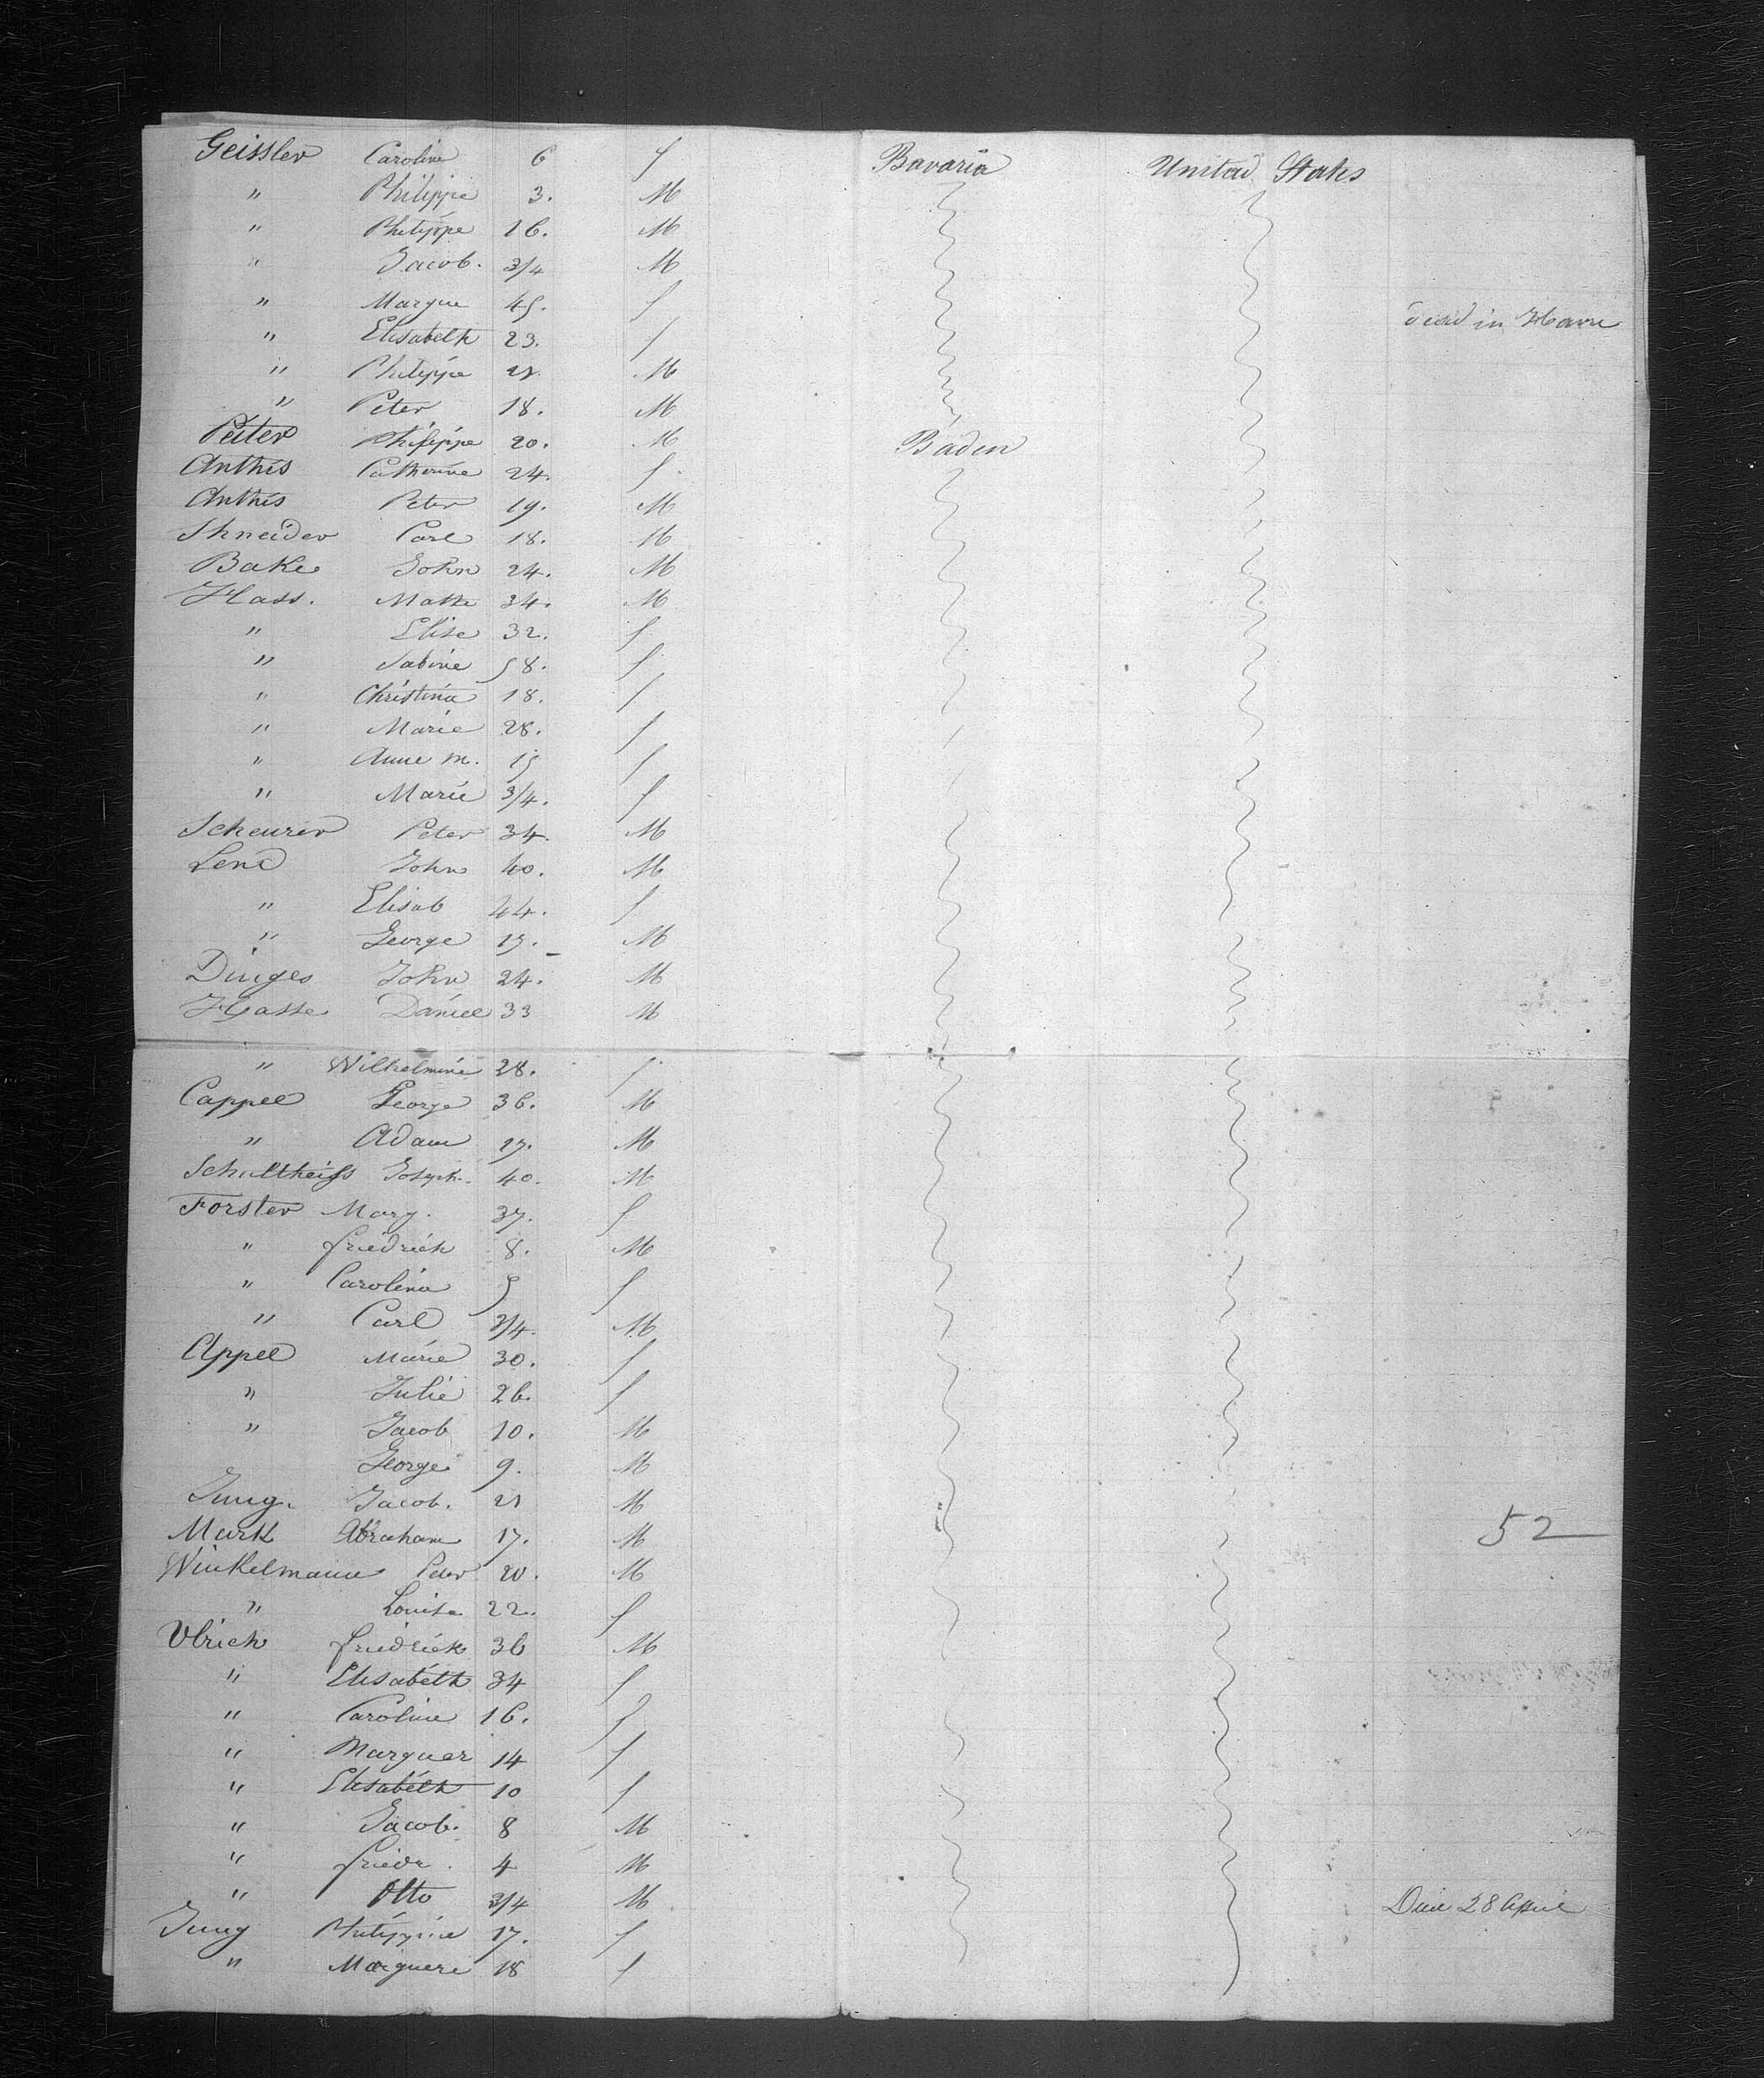 Geissler Caroline 6 f Bavaria United States
" Philippe 3. M
" Philippe 16. M
" Jacob. 3/4 M
" Margue 45. f died in Havre
" Elisabeth 23. f
" Philippe 21. M
" Peter 18. M
Peiter Philippe 20. M Baden
Anthis Catherine 24. f.
Anthis Peter 19. M
Shneider Carl 18. M
Bake John 24. M
Hass. Math 34. M
" Elise 32. f
" Sabine 58. f
" Christina 18. f
" Marie 28. f
" Anne M. 15 f
" Marie 3/4. f
Scheurer Peter 34. M
Lend John 40. M
" Elisab 44. f
" George 17. M
Dinges John 24. M
Hasse Daniel 33 M
" Wilhelmine 28. f
Cappel George 36. M
" Adam 17. M
Schultheiss Joseph. 40. M
Forster Marg. 37. f
" friedrich 8. M
" Carolina 5 f
" Carl 3/4. M
Appel Marie 30. f
" Julie 26. f
" Jacob 10. M
George 9. M
Jung. Jacob. 21 M
Mark Abraham 17. M 52
Winkelmann Peter 20. M
" Louise 22. f
Ulrich friedrich 36 M
" Elisabeth 34 f
" Caroline 16. f
" Marguer 14 f
" Elisabeth 10 f
" Jacob. 8 M
" friedr. 4 M
" Otto 3/4 M Died 28 April
Jung Philippine 17. f
" Marguere 18 f